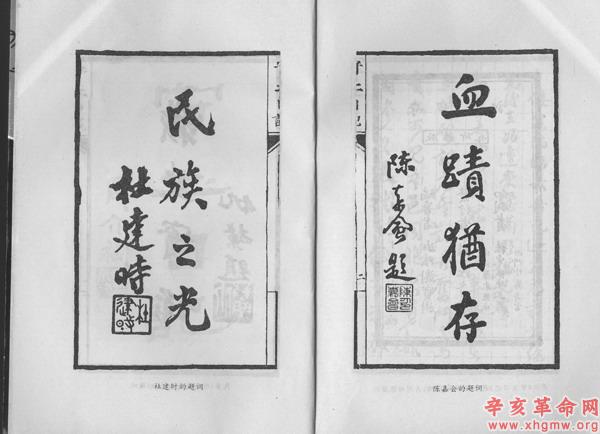 血蹟猶存
陈嘉會题
陈嘉会的题词
民族之光
杜建時
杜建时的题词
辛亥革命网
www.xhgmw.org